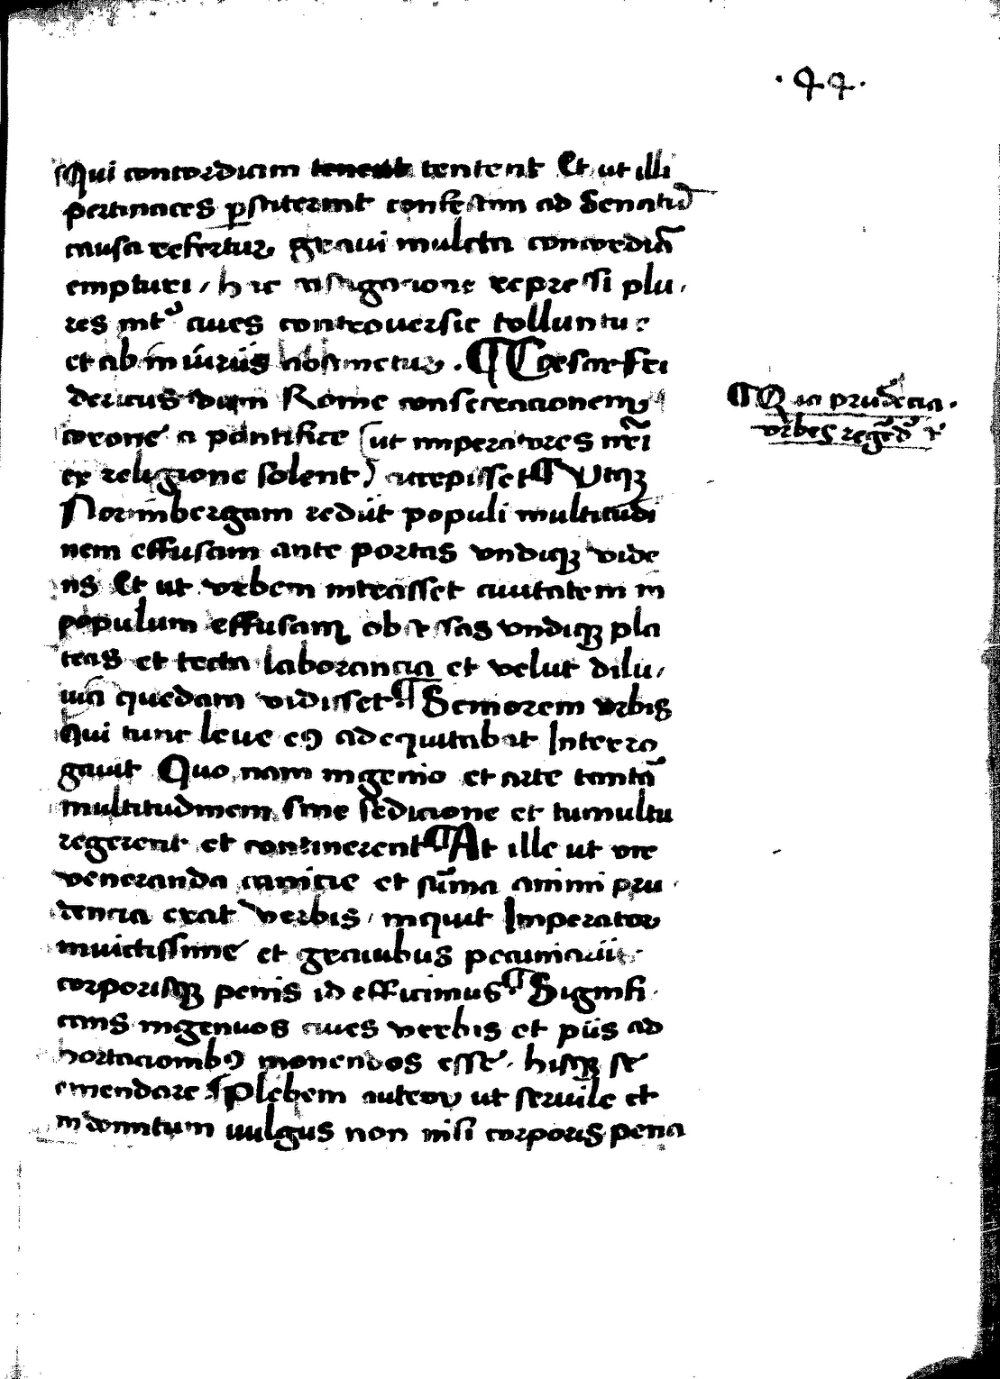 .44.
Qui concordiam tenent tentent Et ut illi
pertinaces ꝑstiterint confestim ad Senatū
causa refertur gravi mulcta concordiā
empturi / hac castigacione repressi plu,
res int̉ cives controversie tolluntur
et ab iniuriis abstinetur . ¶ Cesar Fri
dericus dum Rome consecracionem
corone a pontifice (ut imperatores nr̄i
ex religione solent) accepisset ¶ Utqꝫ
Norinbergam rediit populi multitudi
nem effusam ante portas undiqꝫ vide
ns Et ut urbem intrasset civitatem in
populum effusam obsessas undiqꝫ pla
teas et tecta laborancia et velut dilu,
via quedam vidisset ¶ Seniorem urbis
Qui tunc leve eꝯ adequitabat Interro
gavit Quo nam ingenio et arte tantā
multitudinem sine sedicione et tumultu
regerent et continerent ¶ At ille ut ore
veneranda canicie et sūma animi pru
dencia erat Verbis / inquit Imperator
invictissime et gravibus pecuniariis
corporisqꝫ penis id efficimus ¶ Signifi
cans ingenuos cives verbis et piis ad
hortacionibꝯ monendos esse . hisqꝫ se
emendare ¶ Plebem autem ut servile et
indomitum vulgus non nisi corporis pena
¶ Qua prudēcia .
urbes regēdē